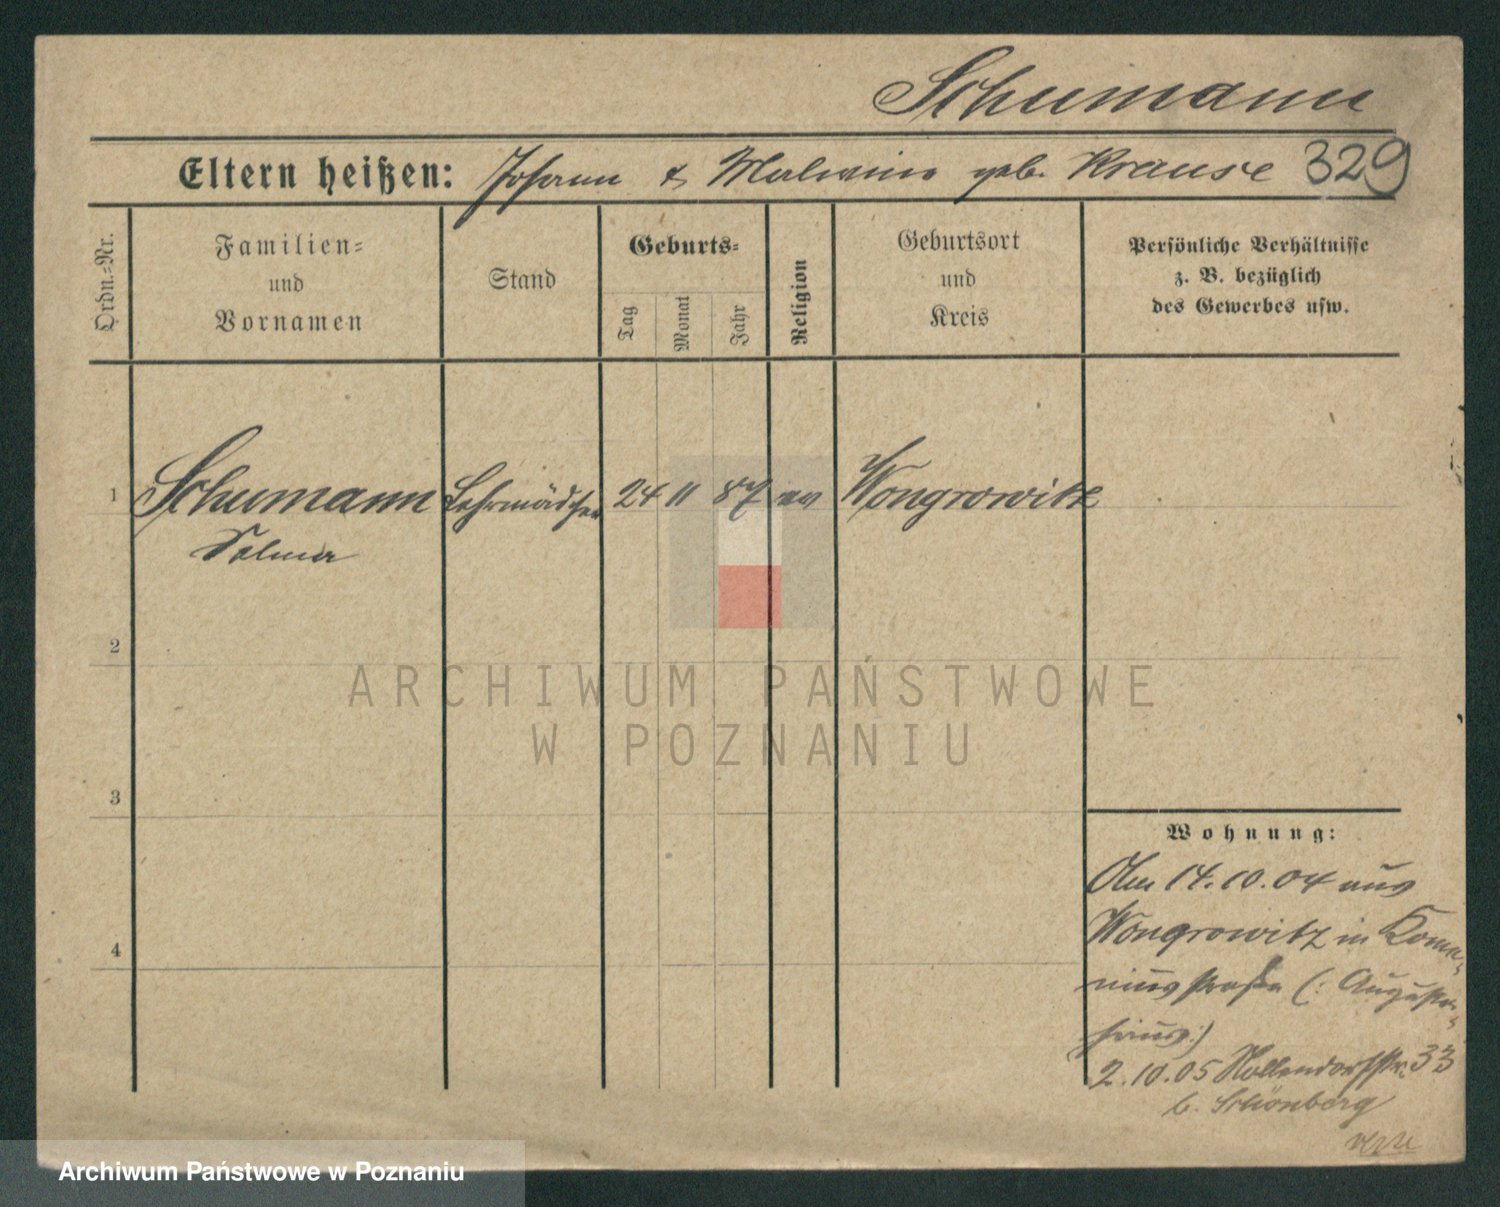 Schumann
Eltern heißen: Johann & Malwine geb. Krause 329
Ordn.-Nr.
Familien-
und
Vornamen
Stand
Geburts-
Tag
Monat
Jahr
Religion
Geburtsort
und
Kreis
Persönliche Verhältnisse
z. B. bezüglich
des Gewerbes usw.
1 Schumann Lehrmädchen 24 11 87 ev Wongrowitz
Selma
2
3
4
Wohnung:
Am 14.10.04 aus
Wongrowitz in
straße (: Augusta-
haus:)
2.10.05 Nollendorfstr. 33
b. Schönberg
verte
ARCHIWUM PAŃSTWOWE
W POZNANIU
Archiwum Państwowe w Poznaniu